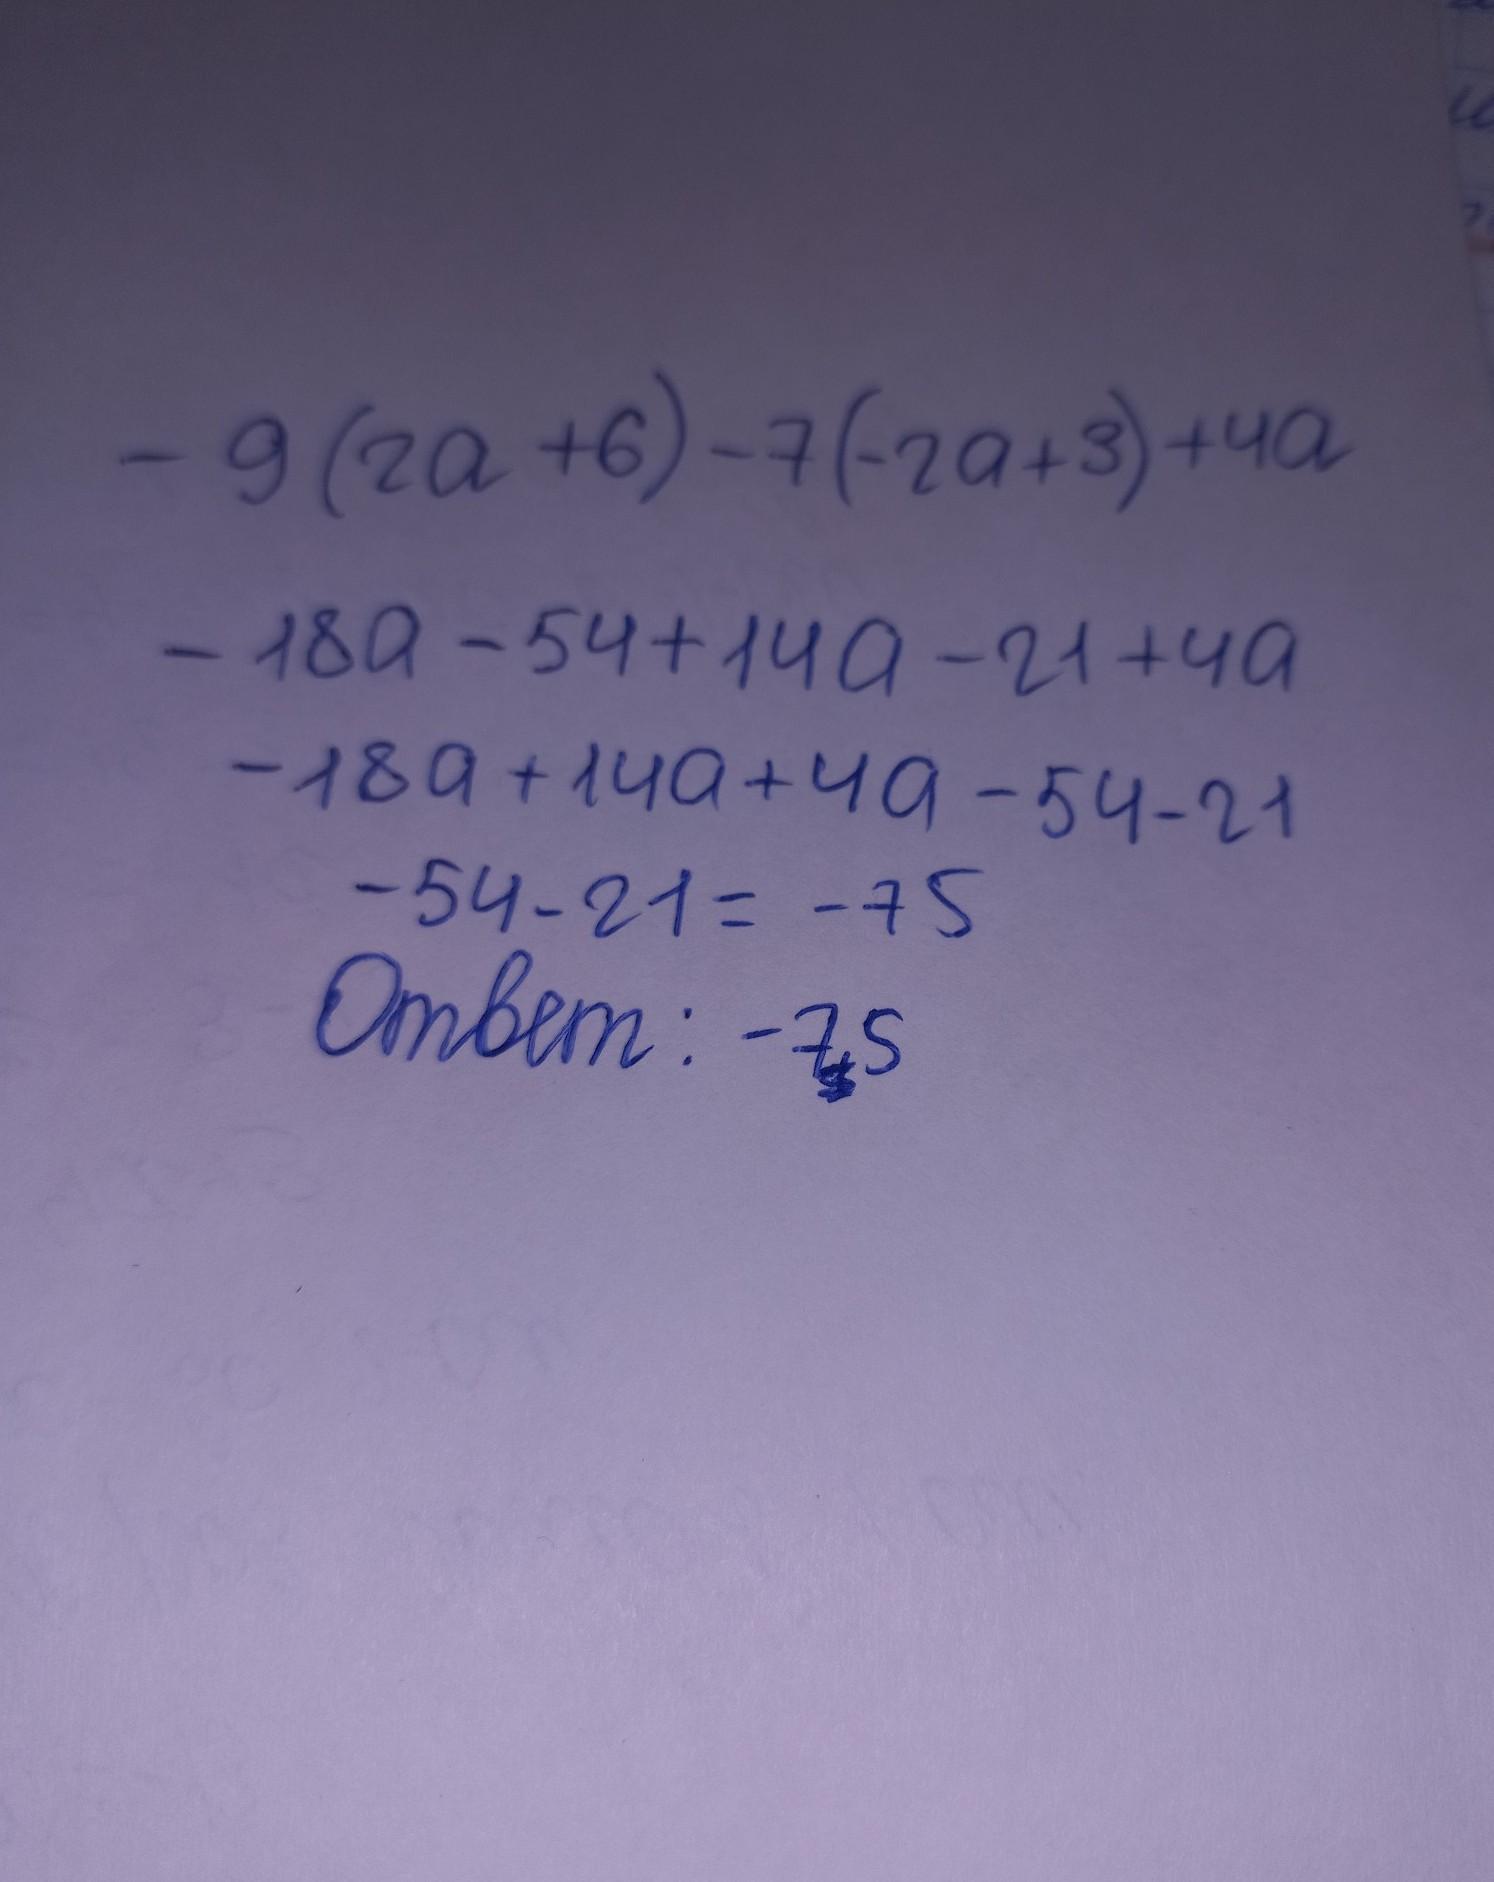 - 9(2a+6)-7(-2a+3)+4a
- 18a-54+14a-21+4a
-18a+14a+4a-54-21
-54-21= -75
Ответ: -75